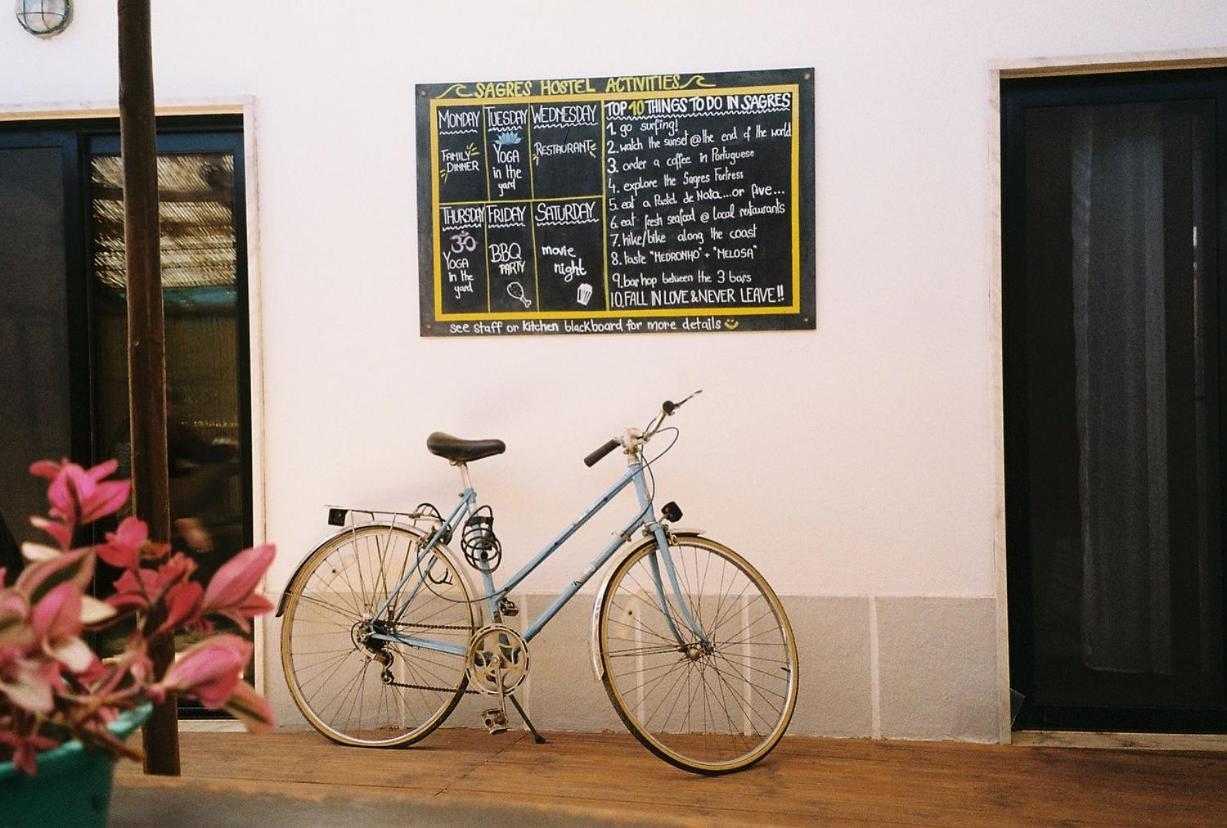 SAGRES HOSTEL ACTIVITIES
MONDAY
FAMILY
DINNER
TUESDAY
YOGA
in the
yard
WEDNESDAY
RESTAURANT
THURSDAY
ॐ
YOGA
in the
yard
FRIDAY
BBQ
PARTY
SATURDAY
movie
night
TOP 10 THINGS TO DO IN SAGRES
1. go surfing!
2. watch the sunset @ the end of the world
3. order a coffee in Portuguese
4. explore the Sagres Fortress
5. eat a Pastel de Nata...or five...
6. eat fresh seafood @ local restaurants
7. hike/bike along the coast
8. taste "MEDRONHO" + "MELOSA"
9. bar hop between the 3 bars
10. FALL IN LOVE & NEVER LEAVE!!
see staff or kitchen blackboard for more details